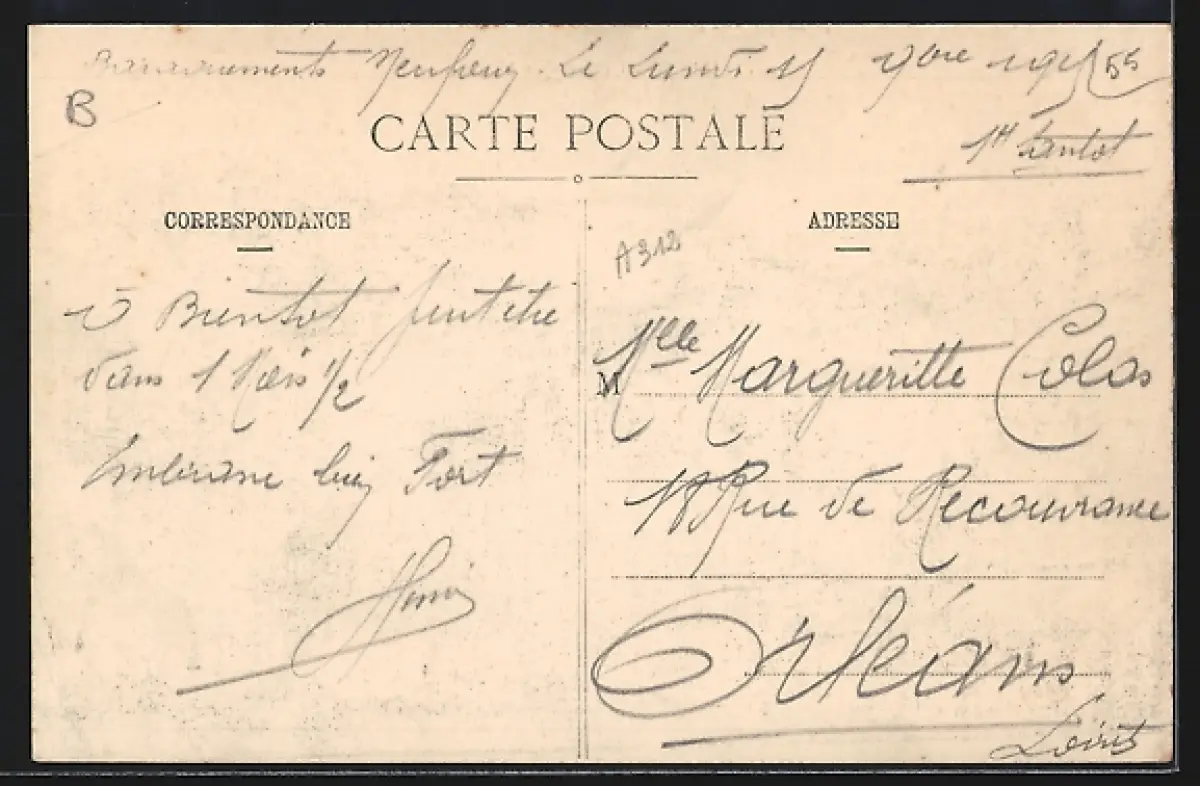 Baraquements Neufeuy. Le Lundi 15 9bre 1915
55
B
CARTE POSTALE
CORRESPONDANCE
ADRESSE
A312
à Bientot peut etre
dans 1 Mois 1/2
Embrasse bien Fort
Henri
M
Melle Margueritte Colas
18 Rue de Recouvrance
Orléans
Loiret